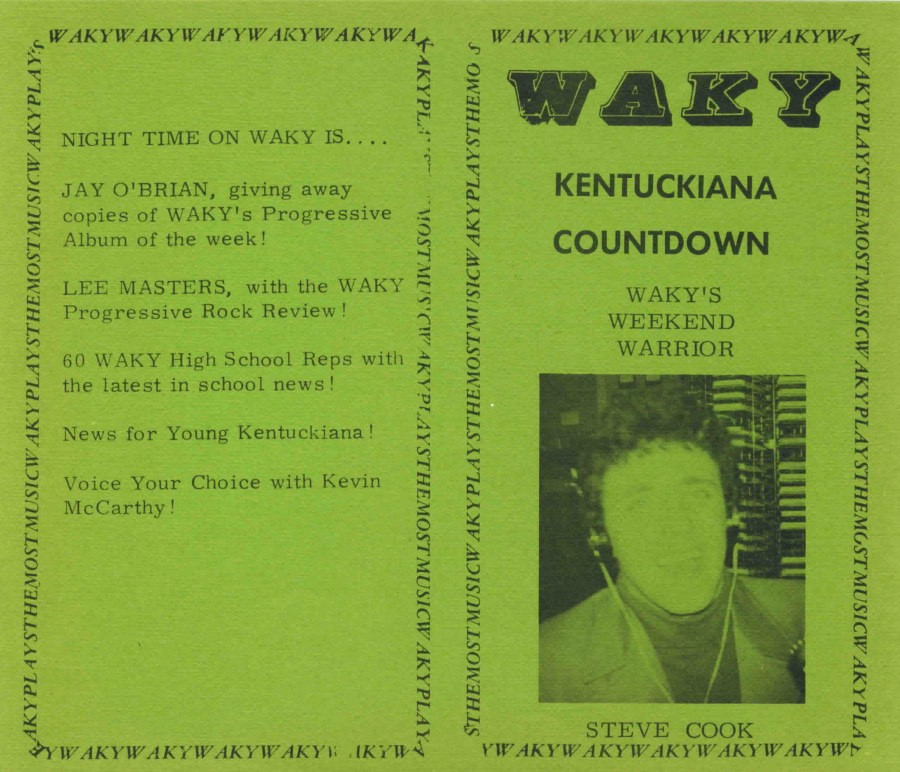 WAKYWAKYWAKYWAKYWAKYWA
NIGHT TIME ON WAKY IS....
JAY O'BRIAN, giving away
copies of WAKY's Progressive
Album of the week!
LEE MASTERS, with the WAKY
Progressive Rock Review!
60 WAKY High School Reps with
the latest in school news!
News for Young Kentuckiana!
Voice Your Choice with Kevin
McCarthy!
AKYPLAYSTHEMOSTMUSICWAKYPLAYSTHEMOSTMUSICWAKYPLAYS
WAKYWAKYWAKYWAKYWAKYWA
WAKY
KENTUCKIANA
COUNTDOWN
WAKY'S
WEEKEND
WARRIOR
STEVE COOK
STHEMOSTMUSICWAKYPLAYSTHEMOSTMUSICWAKYPLAYSTHEMOS
WAKYPLAYSTHEMOSTMUSICWAKYPLAYSTHEMOSTMUSICWAKYPLA
YWAKYWAKYWAKYWAKYWAKYW